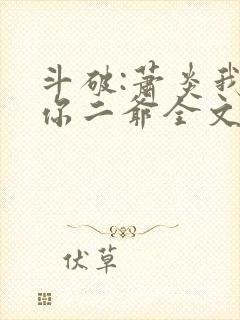 斗破:萧炎我
你二爷全文
伏草